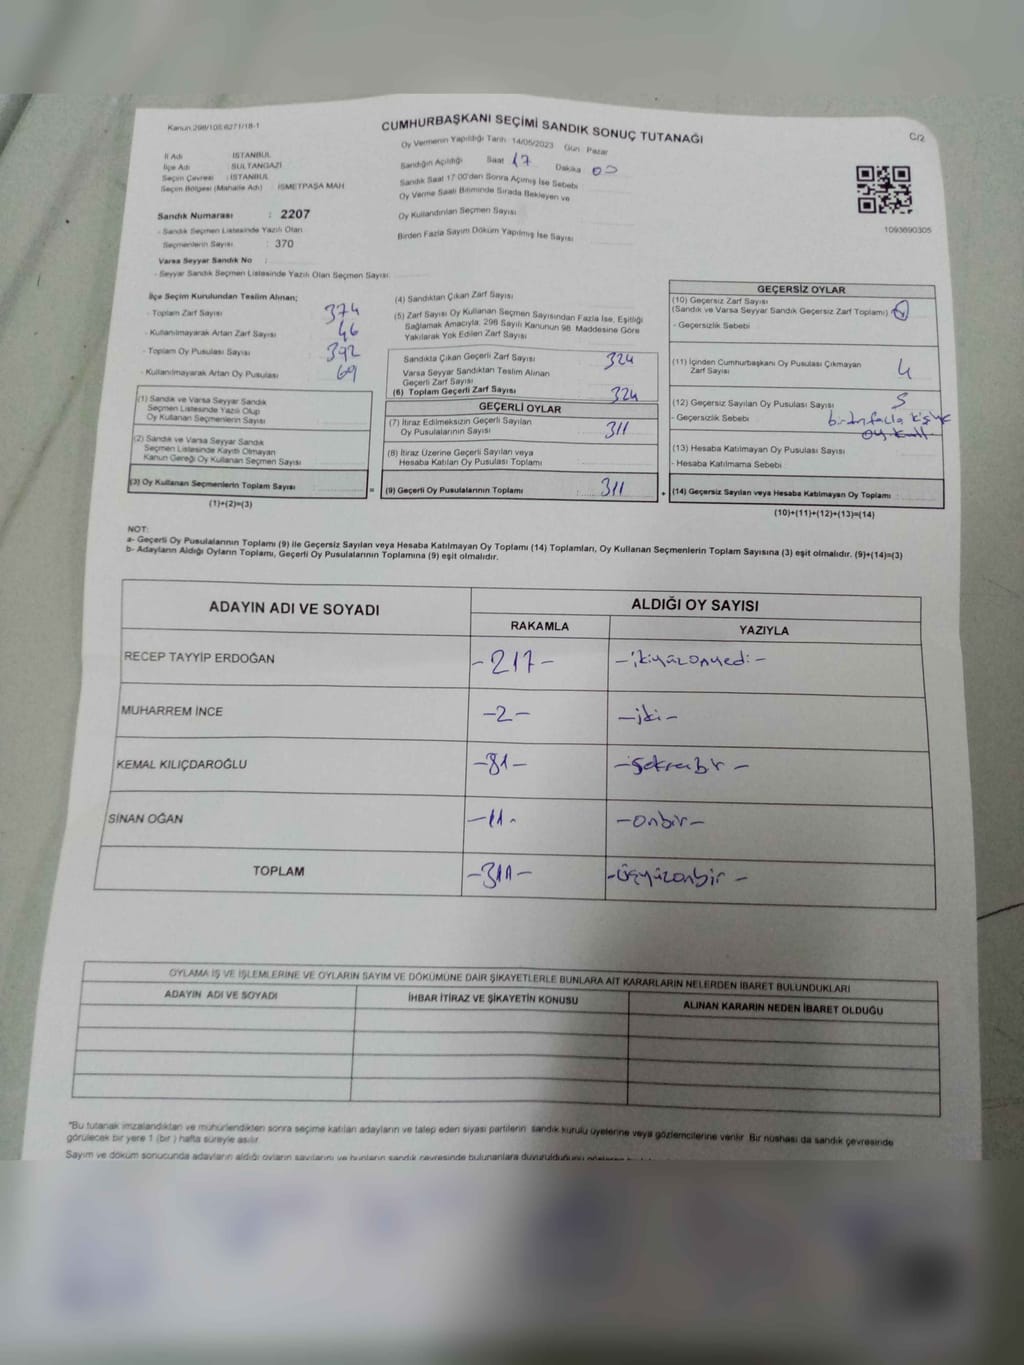 Kanun:298/105.6271/18-1
CUMHURBAŞKANI SEÇİMİ SANDIK SONUÇ TUTANAĞI
C/2
Oy Vermenin Yapıldığı Tarih 14/05/2023 Gün Pazar
İl Adı : İSTANBUL
İlçe Adı : SULTANGAZİ
Seçim Çevresi : İSTANBUL
Seçim Bölgesi (Mahalle Adı) : İSMETPAŞA MAH.
Sandığın Açıldığı Saat 17 Dakika 00
Sandık Saat 17:00'den Sonra Açımış İse Sebebi
Oy Verme Saati Bitiminde Sırada Bekleyen ve
Oy Kullandırılan Seçmen Sayısı
Birden Fazla Sayım Döküm Yapılmış İse Sayısı
1093690305
Sandık Numarası : 2207
- Sandık Seçmen Listesinde Yazılı Olan
Seçmenlerin Sayısı : 370
Varsa Seyyar Sandık No :
- Seyyar Sandık Seçmen Listesinde Yazılı Olan Seçmen Sayısı:
İlçe Seçim Kurulundan Teslim Alınan;
- Toplam Zarf Sayısı 374
- Kullanılmayarak Artan Zarf Sayısı 46
- Toplam Oy Pusulası Sayısı 392
- Kullanılmayarak Artan Oy Pusulası 69
(1) Sandık ve Varsa Seyyar Sandık
Seçmen Listesinde Yazılı Olup
Oy Kullanan Seçmenlerin Sayısı
(2) Sandık ve Varsa Seyyar Sandık
Seçmen Listesinde Kayıtlı Olmayan
Kanun Gereği Oy Kullanan Seçmen Sayısı
(3) Oy Kullanan Seçmenlerin Toplam Sayısı
(1)+(2)=(3)
(4) Sandıktan Çıkan Zarf Sayısı
(5) Zarf Sayısı Oy Kullanan Seçmen Sayısından Fazla İse, Eşitliği
Sağlamak Amacıyla, 298 Sayılı Kanunun 98. Maddesine Göre
Yakılarak Yok Edilen Zarf Sayısı
Sandıkta Çıkan Geçerli Zarf Sayısı 324
Varsa Seyyar Sandıktan Teslim Alınan
Geçerli Zarf Sayısı
(6) Toplam Geçerli Zarf Sayısı 324
GEÇERLİ OYLAR
(7) İtiraz Edilmeksizin Geçerli Sayılan
Oy Pusulalarının Sayısı 311
(8) İtiraz Üzerine Geçerli Sayılan veya
Hesaba Katılan Oy Pusulası Toplamı
= (9) Geçerli Oy Pusulalarının Toplamı : 311
GEÇERSİZ OYLAR
(10) Geçersiz Zarf Sayısı
(Sandık ve Varsa Seyyar Sandık Geçersiz Zarf Toplamı)
- Geçersizlik Sebebi
(11) İçinden Cumhurbaşkanı Oy Pusulası Çıkmayan
Zarf Sayısı 4
(12) Geçersiz Sayılan Oy Pusulası Sayısı 5
- Geçersizlik Sebebi birden fazla kişiye
(13) Hesaba Katılmayan Oy Pusulası Sayısı
- Hesaba Katılmama Sebebi
+ (14) Geçersiz Sayılan veya Hesaba Katılmayan Oy Toplamı
(10)+(11)+(12)+(13)=(14)
NOT:
a- Geçerli Oy Pusulalarının Toplamı (9) ile Geçersiz Sayılan veya Hesaba Katılmayan Oy Toplamı (14) Toplamları, Oy Kullanan Seçmenlerin Toplam Sayısına (3) eşit olmalıdır. (9)+(14)=(3)
b- Adayların Aldığı Oyların Toplamı, Geçerli Oy Pusulalarının Toplamına (9) eşit olmalıdır.
ADAYIN ADI VE SOYADI
ALDIĞI OY SAYISI
RAKAMLA YAZIYLA
RECEP TAYYİP ERDOĞAN -217- -ikiyüzonyedi-
MUHARREM İNCE -2- -iki-
KEMAL KILIÇDAROĞLU -81- -seksenbir-
SİNAN OĞAN -11- -onbir-
TOPLAM -311- -üçyüzonbir-
OYLAMA İŞ VE İŞLEMLERİNE VE OYLARIN SAYIM VE DÖKÜMÜNE DAİR ŞİKAYETLERLE BUNLARA AİT KARARLARIN NELERDEN İBARET BULUNDUKLARI
ADAYIN ADI VE SOYADI İHBAR İTİRAZ VE ŞİKAYETİN KONUSU ALINAN KARARIN NEDEN İBARET OLDUĞU
"Bu tutanak imzalandıktan ve mühürlendikten sonra seçime katılan adayların ve talep eden siyasi partilerin sandık kurulu üyelerine veya gözlemcilerine verilir. Bir nüshası da sandık çevresinde
görülecek bir yere 1 (bir ) hafta süreyle asılır.
Sayım ve döküm sonucunda adayların aldığı oyların sayılarını ve bunların sandık çevresinde bulunanlara duyurulduğunu